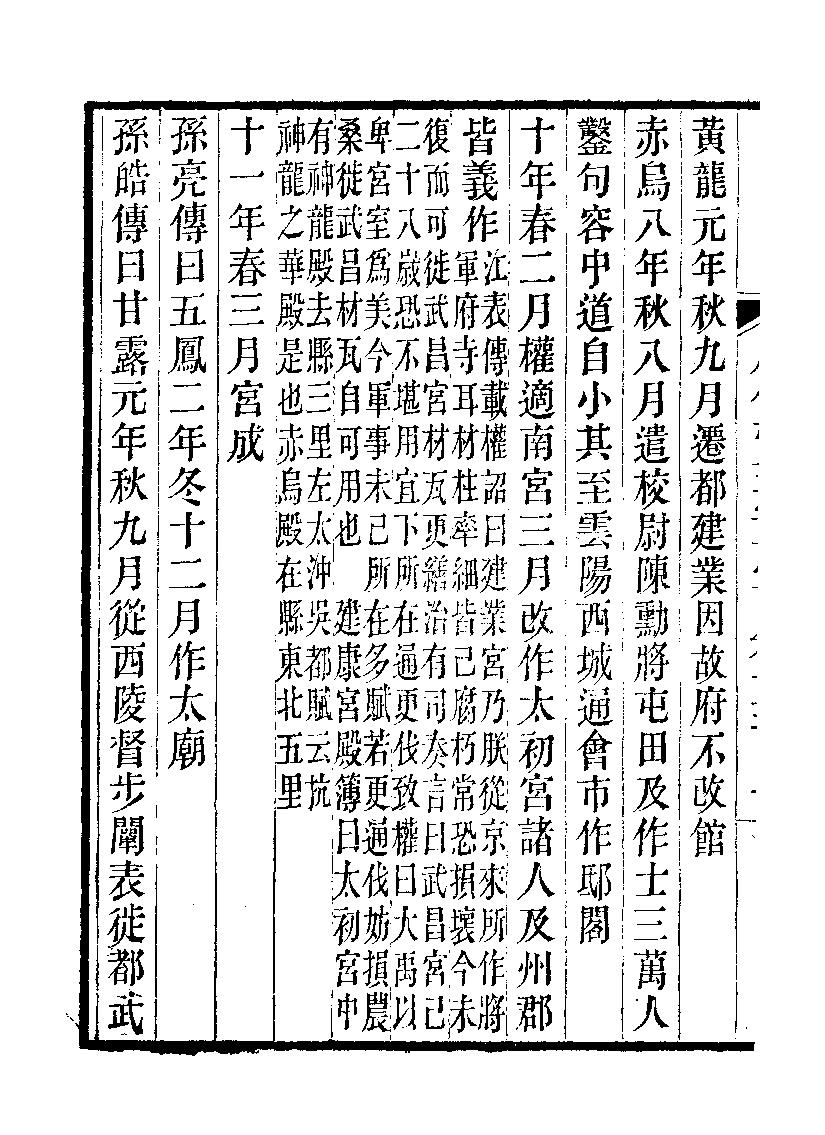 黃龍元年秋九月遷都建業因故府不改館
赤烏八年秋八月遣校尉陳勳將屯田及作士三萬人
鑿句容中道自小其至雲陽西城通會市作邸閣
十年春二月權適南宮三月改作太初宮諸人及州郡
皆義作
江表傳載權詔曰建業宮乃朕從京來所作將
軍府寺耳材柱率細皆已腐朽常恐損壞今未
復而可徙武昌宮材瓦更繕治有司奏言曰武昌宮已
二十八歲恐不堪用宜下所在通更伐致權曰大禹以
卑宮室爲美今軍事未已所在多賦若更通伐妨損農
桑徙武昌材瓦自可用也 建康宮殿簿曰太初宮中
有神龍殿去縣三里左太沖吳都賦云抗
神龍之華殿是也赤烏殿在縣東北五里
十一年春三月宮成
孫亮傳曰五鳳二年冬十二月作太廟
孫皓傳曰甘露元年秋九月從西陵督步闡表徙都武